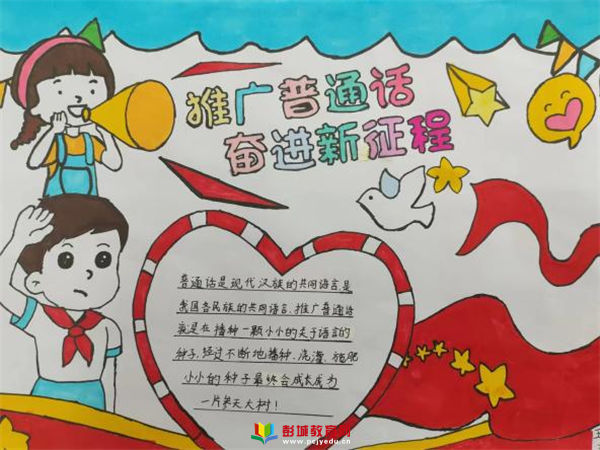 推广普通话
奋进新征程
普通话是现代汉族的共同语言,是
我国各民族的共同语言,推广普通话
就是在播种一颗小小的关于语言的
种子,经过不断地播种、浇灌、施肥
小小的种子最终会成长成为
一片参天大树!
彭城教育
www.pcjyedu.cn